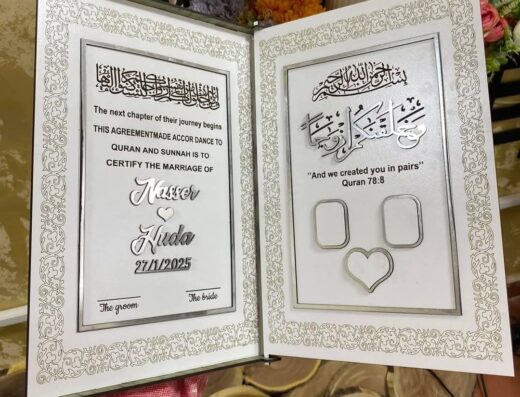 The next chapter of their journey begins
THIS AGREEMENTMADE ACCOR DANCE TO
QURAN AND SUNNAH IS TO
CERTIFY THE MARRIAGE OF
Nasser
Huda
27/1/2025
The groom
The bride
بسم الله الرحمن الرحيم
وخلقنكم ازوجا
"And we created you in pairs"
Quran 78:8